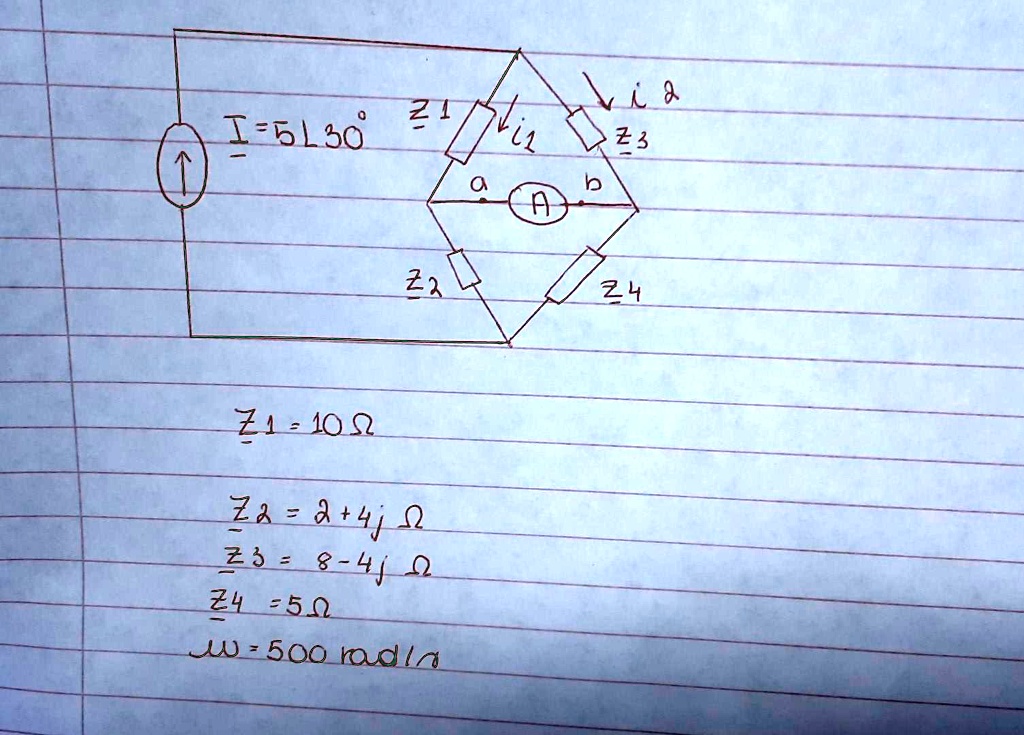 Z1
i2
i2
I=5∟30°
Z3
a
A
b
Z2
Z4
Z1 = 10Ω
Z2 = 2+4j Ω
Z3 = 8-4j Ω
Z4 = 5Ω
ω = 500 rad/s